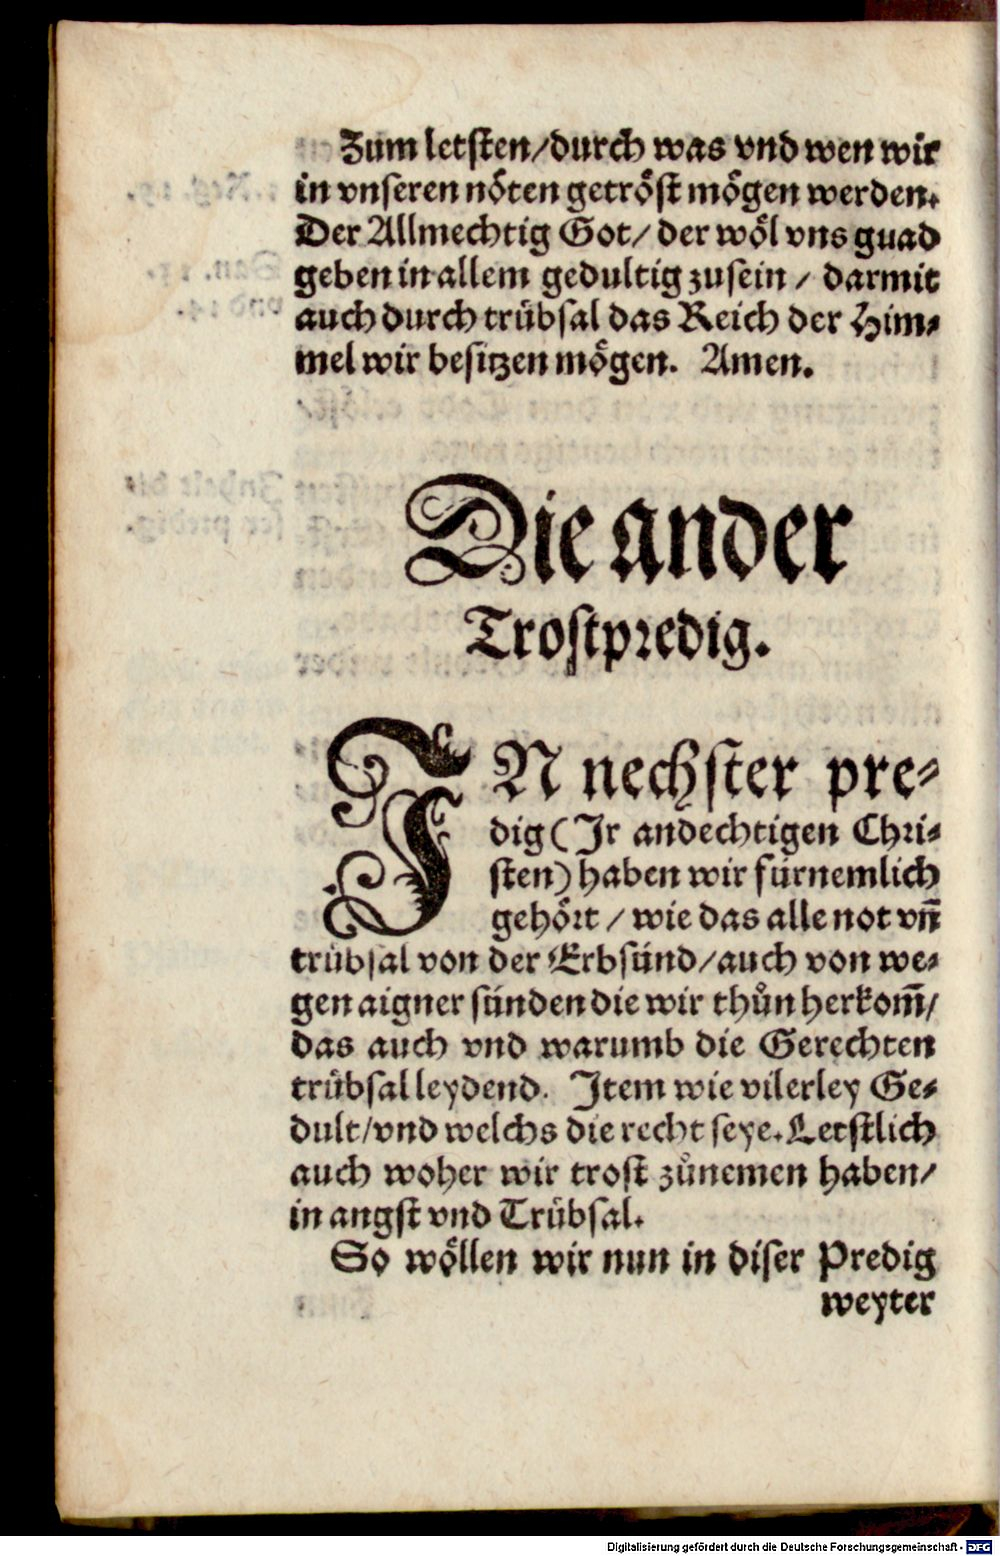 Zum letsten/durch was vnd wen wir
in vnseren nöten getröst mögen werden.
Der Allmechtig Got/ der wöl vns gnad
geben in allem gedultig zusein / darmit
auch durch trübsal das Reich der Him⸗
mel wir besitzen mögen. Amen.
Die ander
Trostpredig.
IN nechster pre⸗
dig (Ir andechtigen Chri⸗
sten) haben wir fürnemlich
gehört / wie das alle not vñ
trübsal von der Erbsünd/auch von we⸗
gen aigner sünden die wir thůn herkom̃/
das auch vnd warumb die Gerechten
trübsal leydend. Item wie vilerley Ge⸗
dult/vnd welchs die recht seye. Letstlich
auch woher wir trost zůnemen haben/
in angst vnd Trübsal.
So wöllen wir nun in diser Predig
weyter
Digitalisierung gefördert durch die Deutsche Forschungsgemeinschaft - DFG